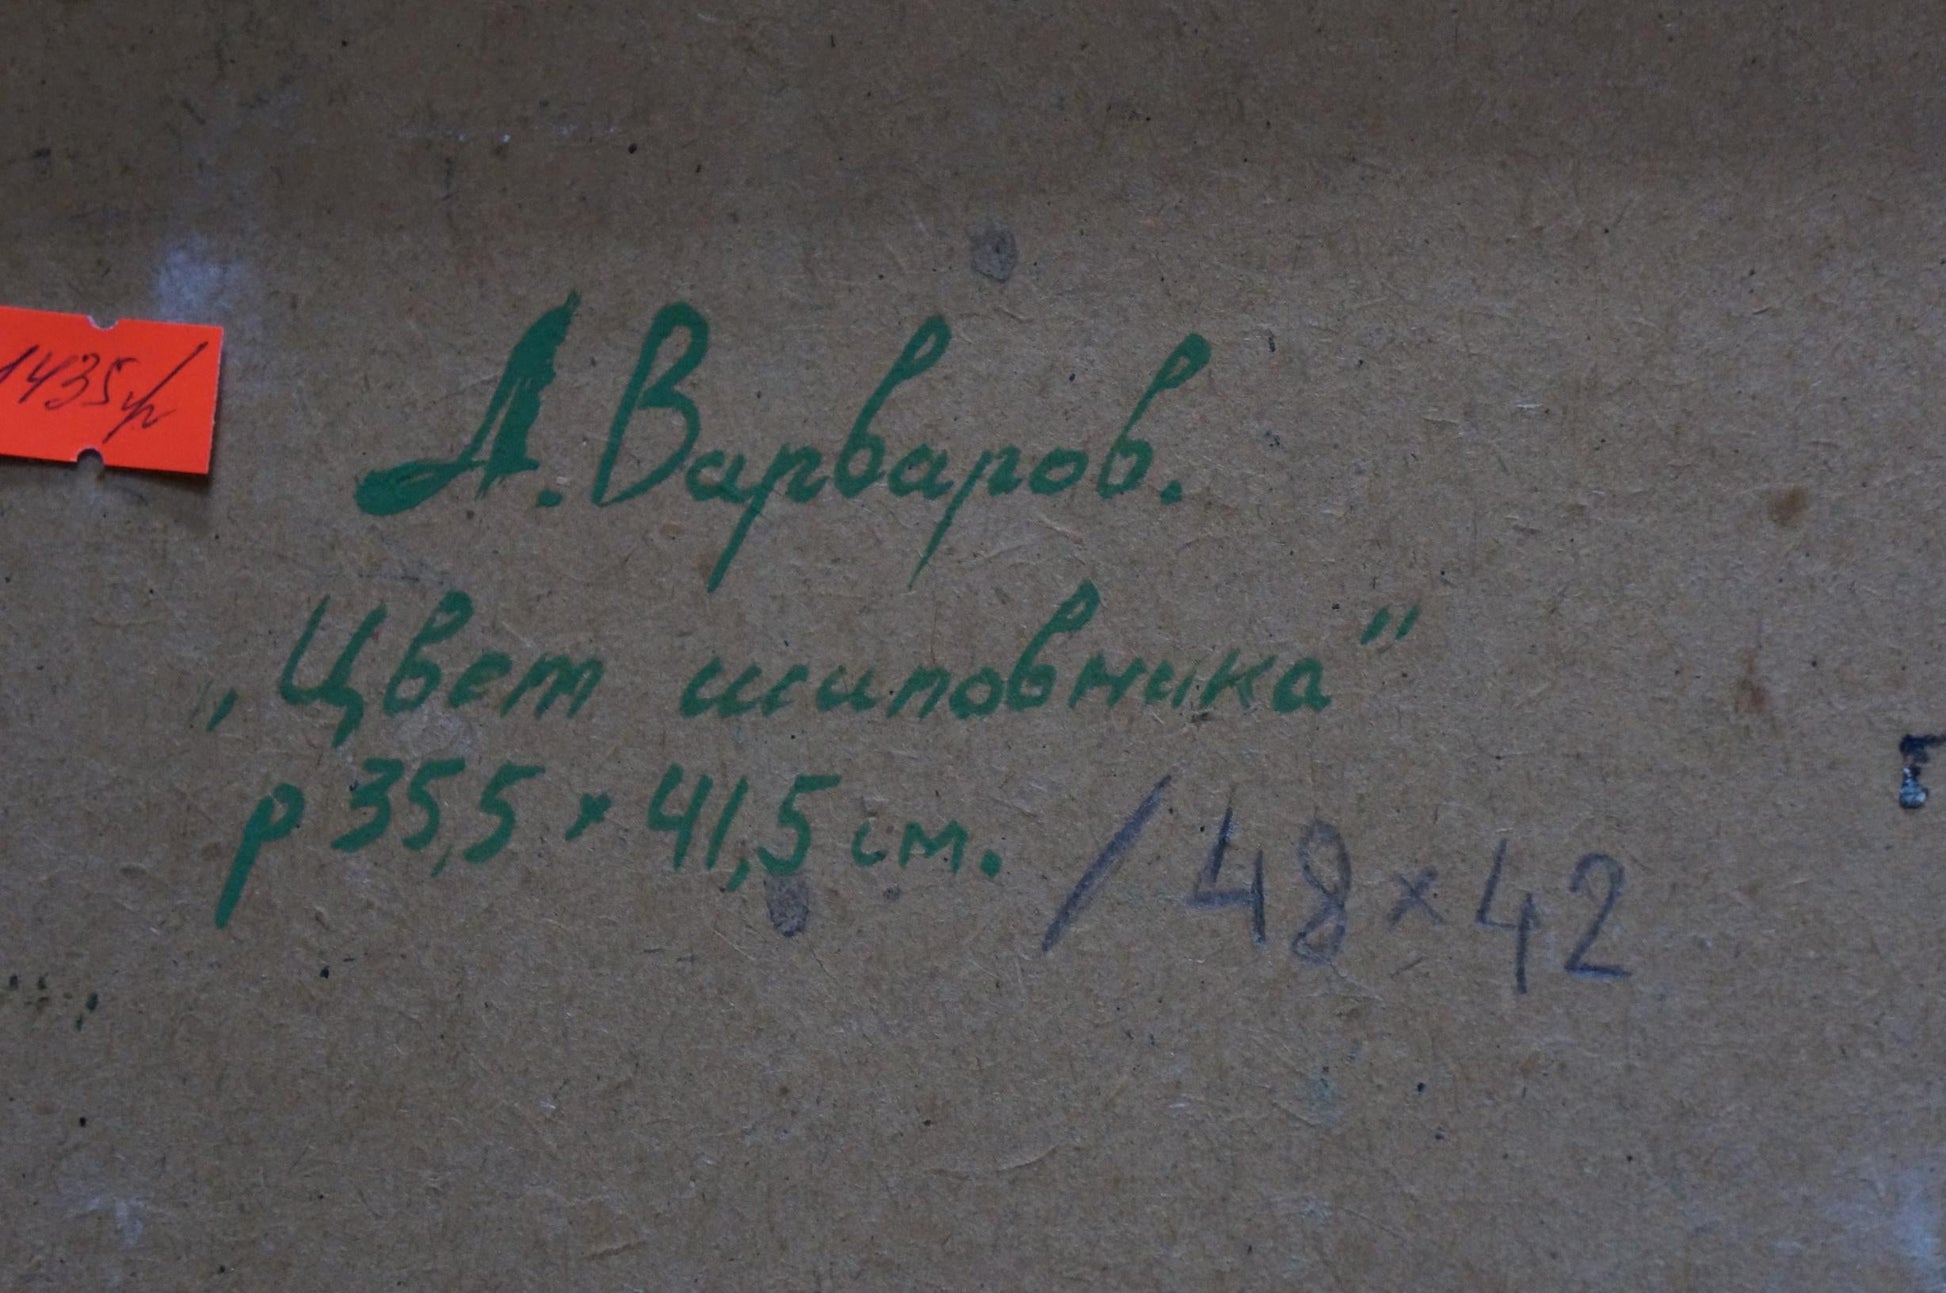 1435 р
А. Варваров.
„Цвет шиповника"
р 35,5 × 41,5 см. / 48 × 42